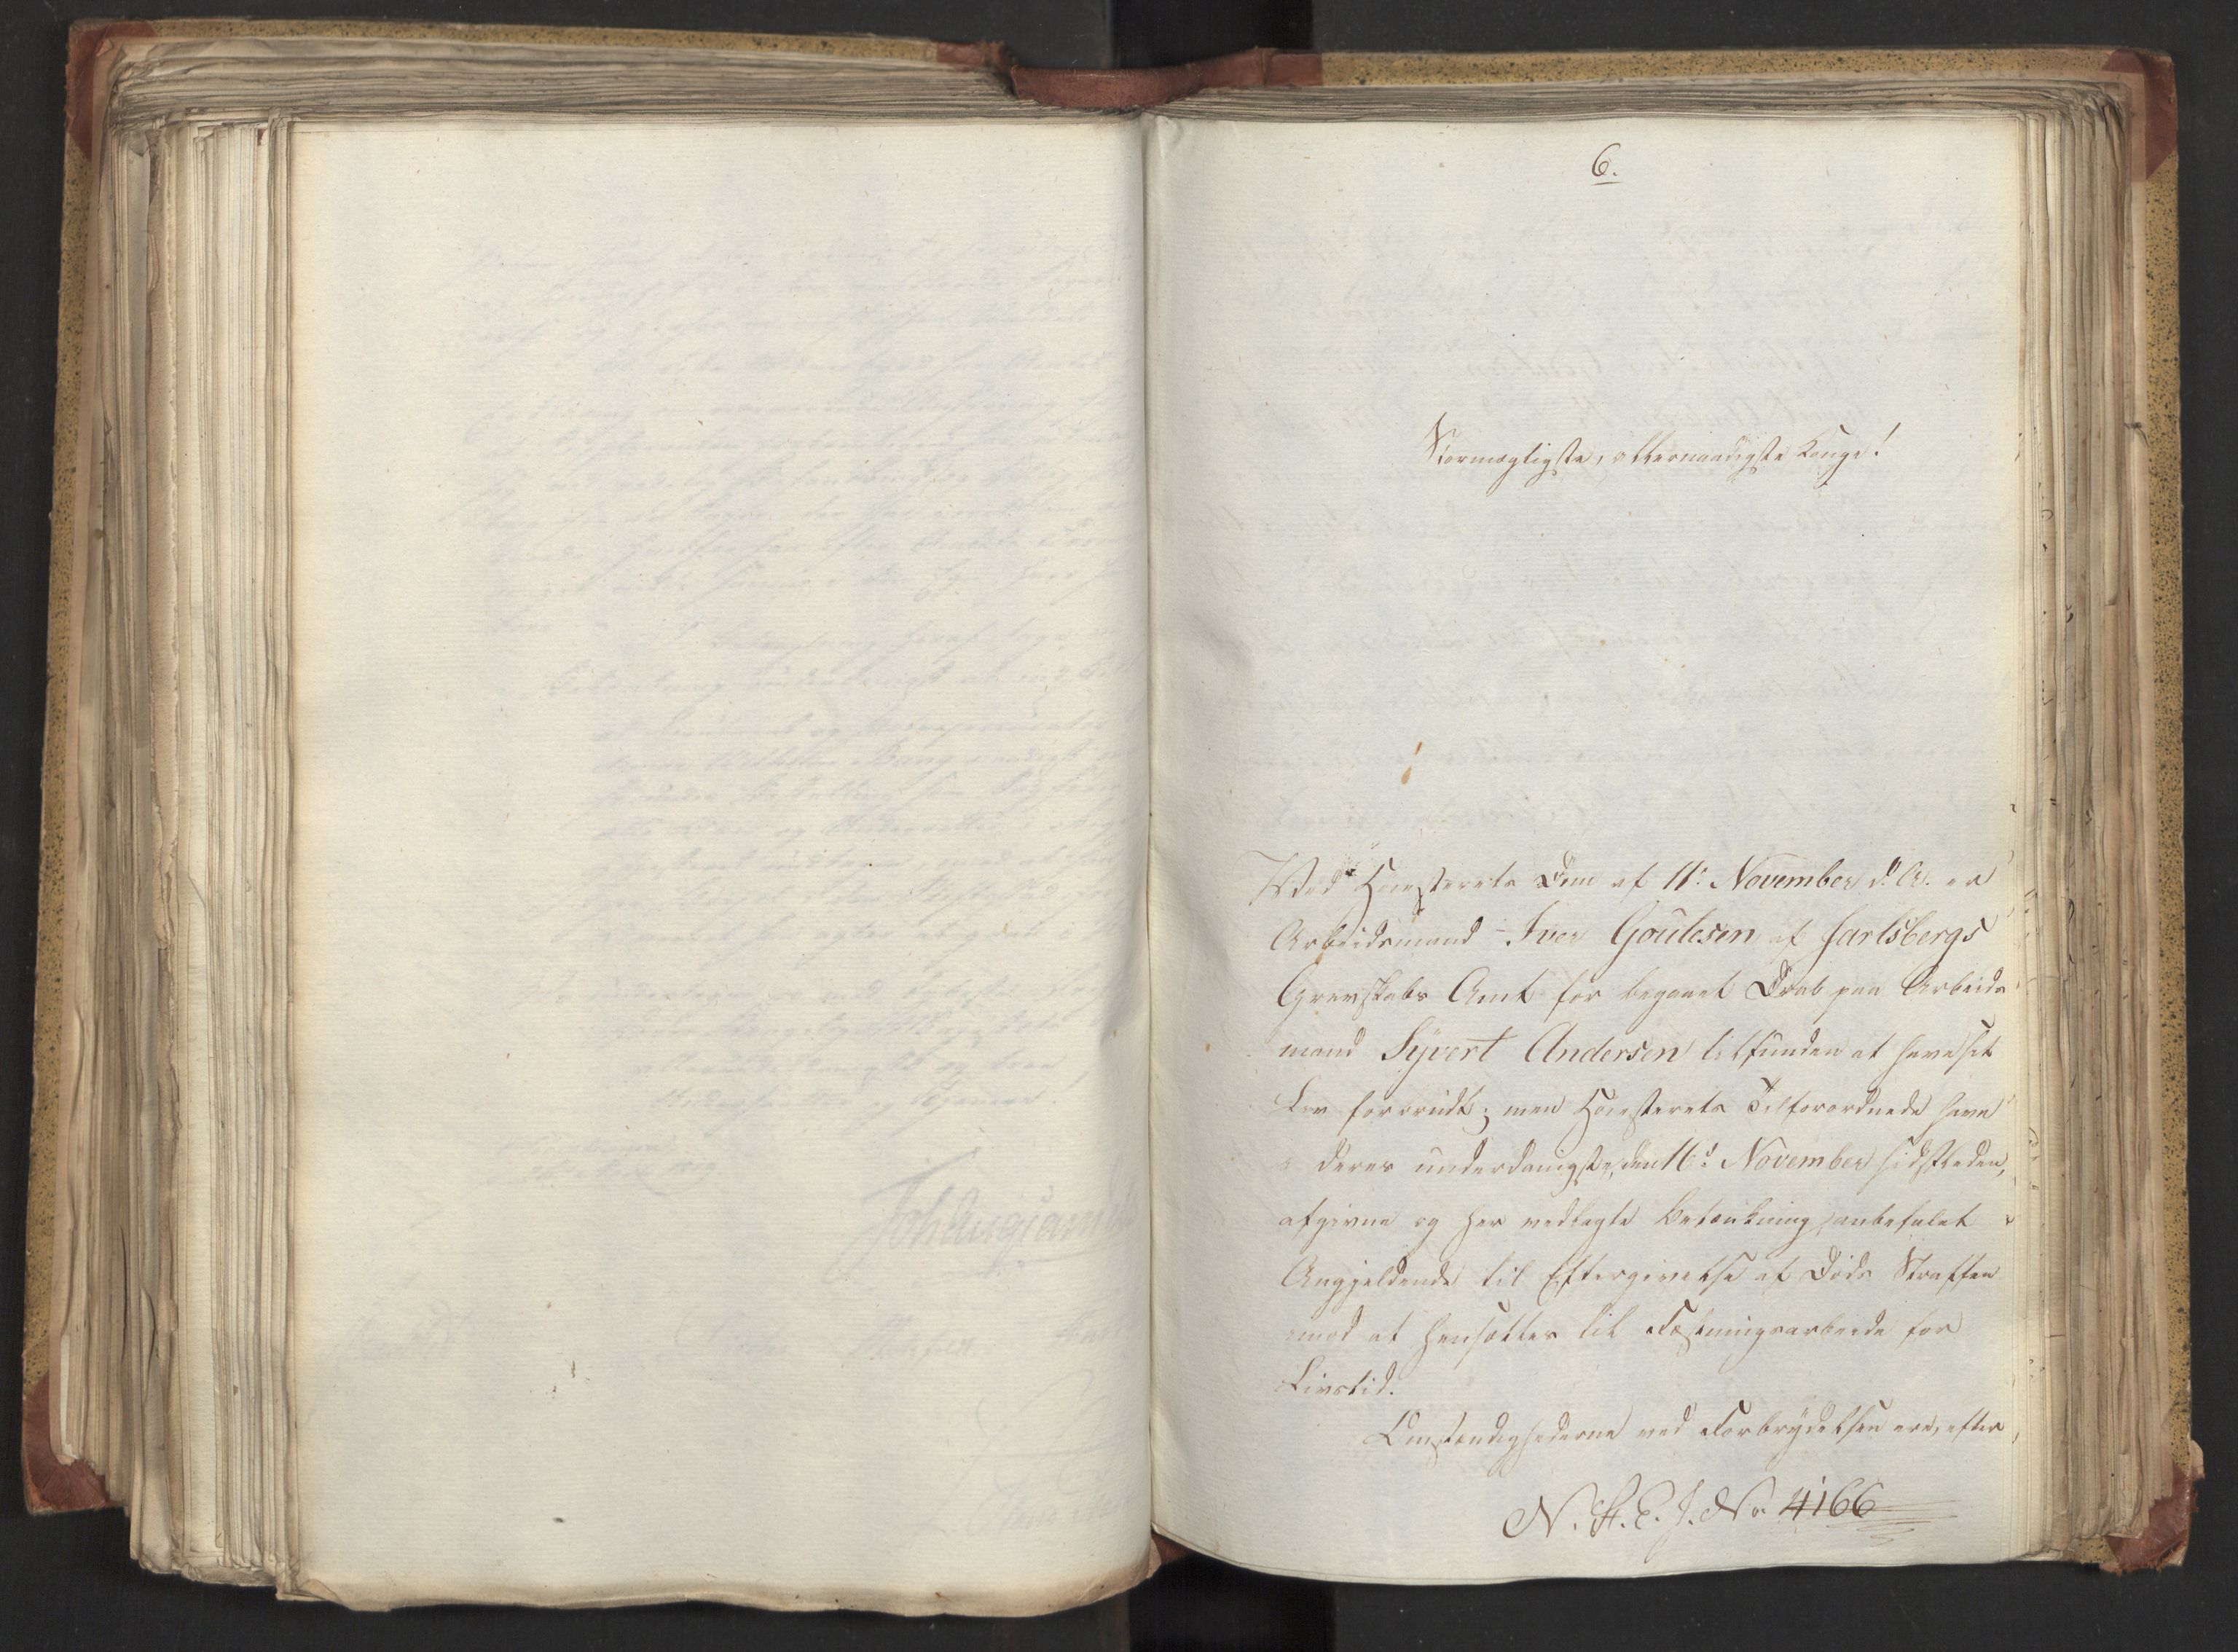 6.
Stormægtigste, allernaadigste Konge!
Ved Høiesterets Dom af 11te November d. A. er
Arbeidsmand Iver Goulesen af Jarlsbergs
Grevskabs Amt for begaaet Drab paa Arbeids
mand Syvert Andersen tilfunden at have sit
Liv forbrudt; men Høiesterets Tilforordnede have
i deres underdanigste, den 16de November sidstleden,
afgivne og her vedlagte Betænkning, anbefalet
Angjeldende til Eftergivelse af Døds Straffen
mod at hensættes til Fæstningsarbeide for
Livstid.
Omstændighederne ved Forbrydelsen ere, efter
N. St. E. J. No 4166